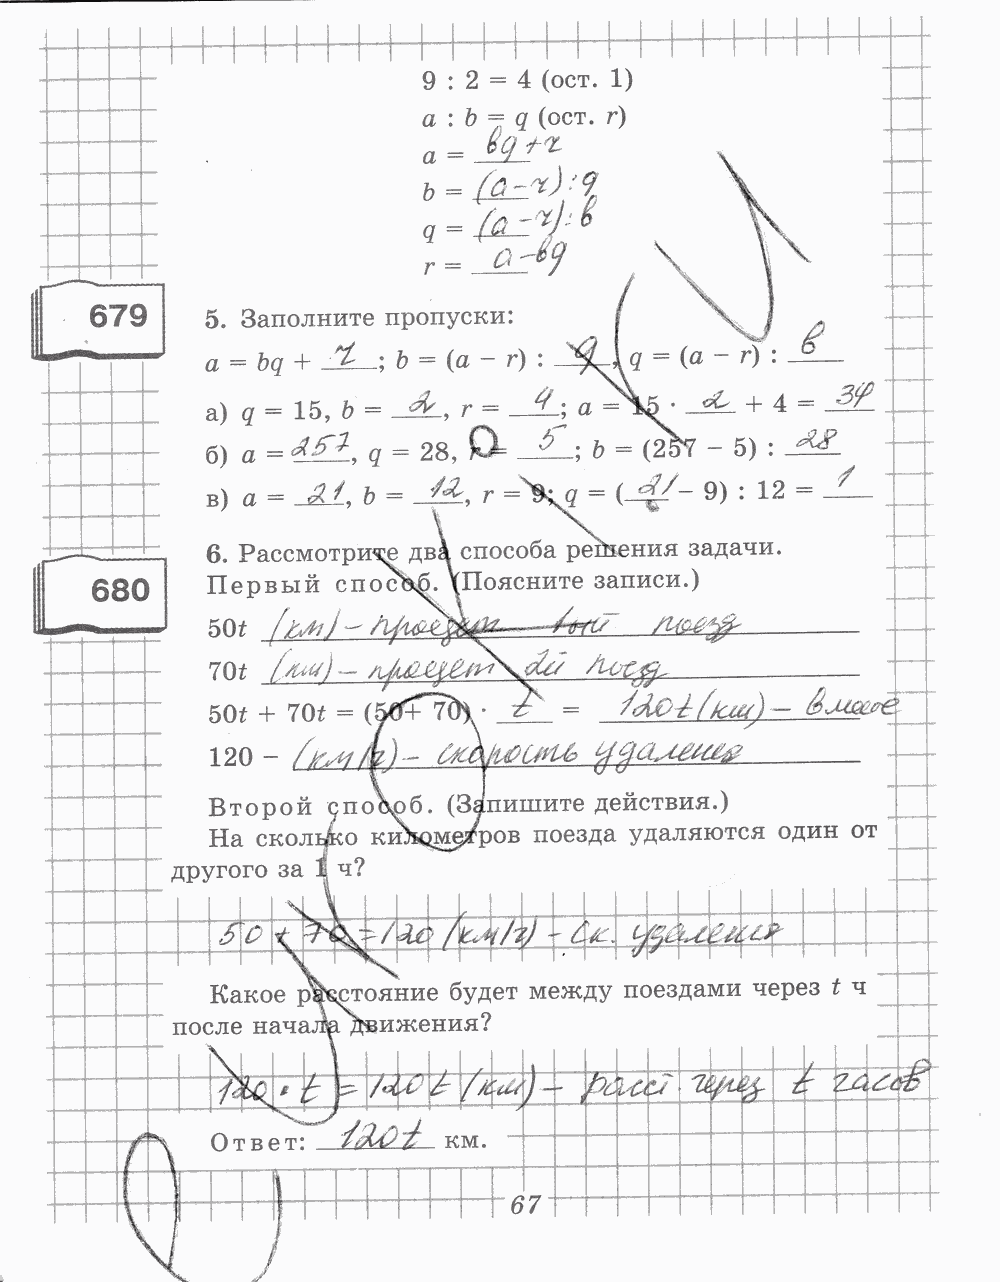 9 : 2 = 4 (ост. 1)
a : b = q (ост. r)
a = bq + r
b = (a − r) : q
q = (a − r) : b
r = a − bq
679
5. Заполните пропуски:
a = bq + r ; b = (a − r) : q , q = (a − r) : b
а) q = 15, b = 2 , r = 4 ; a = 15 · 2 + 4 = 34
б) a = 257 , q = 28, r = 5 ; b = (257 − 5) : 28
в) a = 21 , b = 12 , r = 9; q = ( 21 − 9) : 12 = 1
6. Рассмотрите два способа решения задачи.
680
Первый способ. (Поясните записи.)
50t (км) – проедет 1ый поезд
70t (км) – проедет 2й поезд
50t + 70t = (50 + 70) · t = 120t (км) – вместе
120 − (км/ч) – скорость удаления
Второй способ. (Запишите действия.)
На сколько километров поезда удаляются один от
другого за 1 ч?
50 + 70 = 120 (км/ч) – ск. удаления
Какое расстояние будет между поездами через t ч
после начала движения?
120 · t = 120t (км) – расст. через t часов
Ответ: 120t км.
67